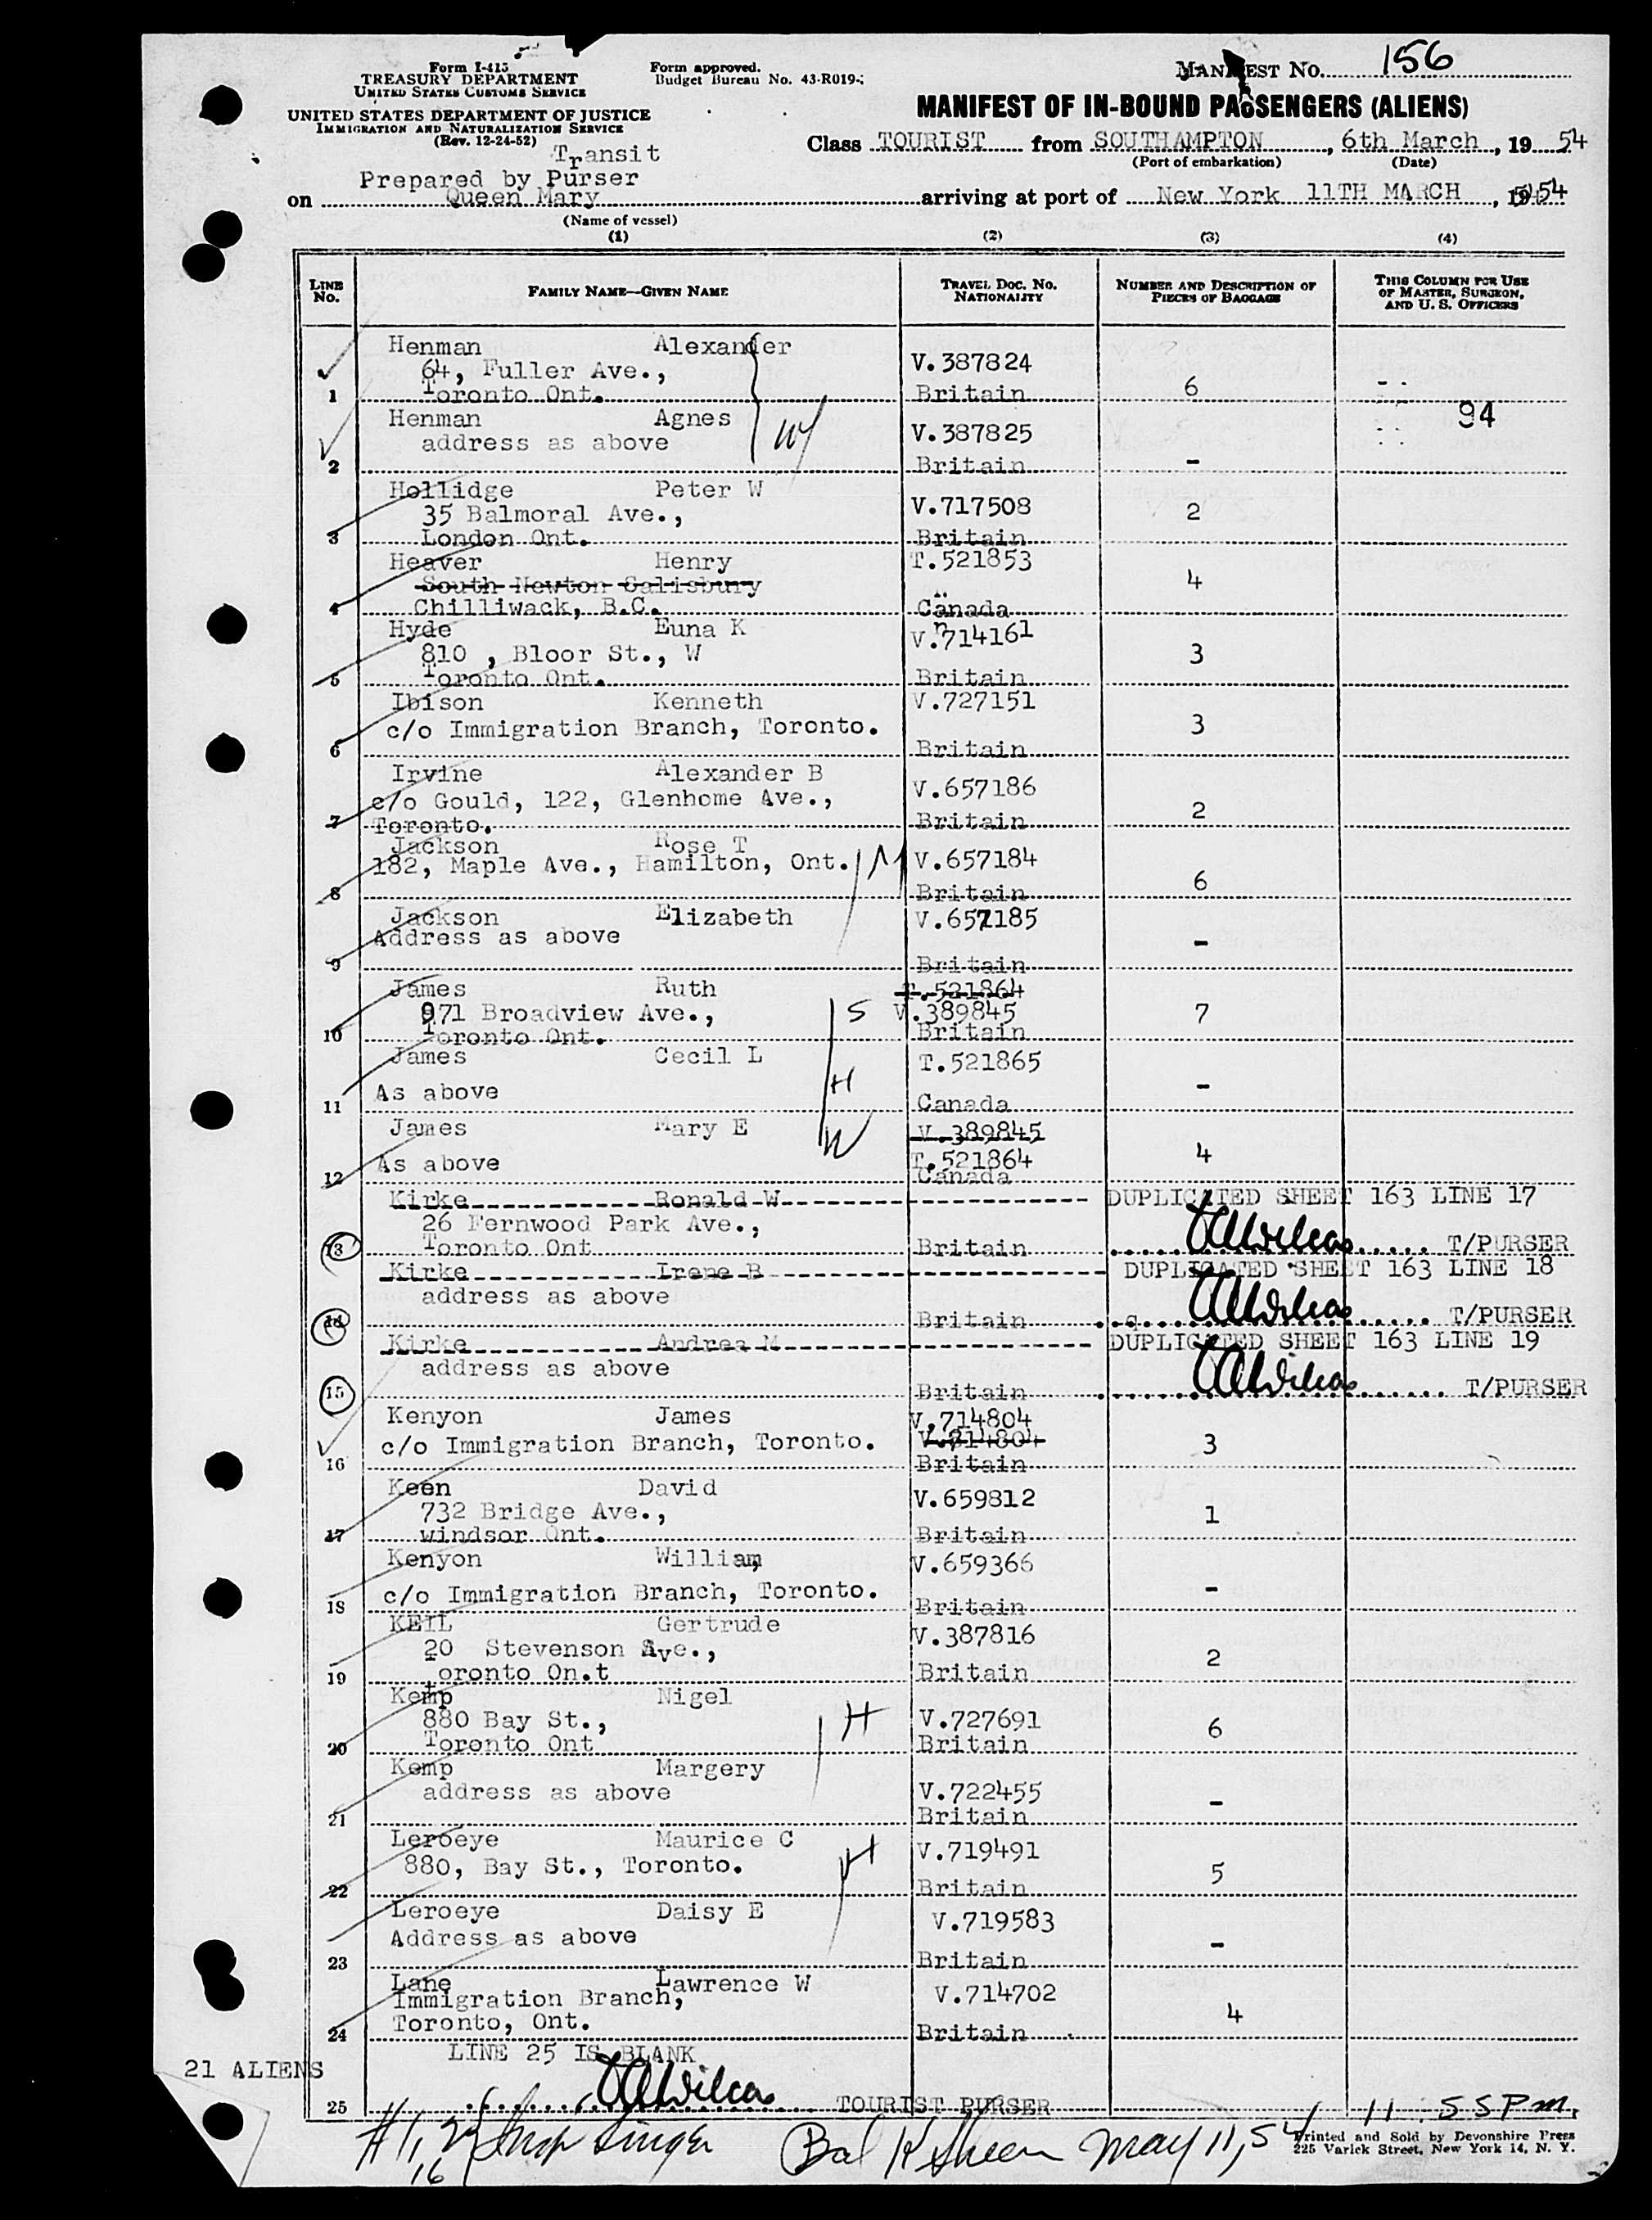 Form I-415
TREASURY DEPARTMENT
UNITED STATES CUSTOMS SERVICE
UNITED STATES DEPARTMENT OF JUSTICE
IMMIGRATION AND NATURALIZATION SERVICE
(Rev. 12-24-52)
Form approved.
Budget Bureau No. 43-R019-
MANIFEST No. 156
MANIFEST OF IN-BOUND PASSENGERS (ALIENS)
Class TOURIST from SOUTHAMPTON, 6th March, 19 54
(Port of embarkation) (Date)
Transit
Prepared by Purser
on Queen Mary arriving at port of New York 11TH MARCH, 1954
(Name of vessel)
(1) (2) (3) (4)
LINE No. FAMILY NAME—GIVEN NAME TRAVEL DOC. NO. NATIONALITY NUMBER AND DESCRIPTION OF PIECES OF BAGGAGE THIS COLUMN FOR USE OF MASTER, SURGEON, AND U. S. OFFICERS
Henman Alexander
64, Fuller Ave., V.387824
1 Toronto Ont. Britain 6
94
Henman Agnes W
address as above V.387825
2 Britain -
Hollidge Peter W
35 Balmoral Ave., V.717508 2
3 London Ont. Britain
Heaver Henry T.521853
South Newton Salisbury 4
4 Chilliwack, B.C. Canada
Hyde Euna K V.714161
810 , Bloor St., W 3
5 Toronto Ont. Britain
Ibison Kenneth V.727151
c/o Immigration Branch, Toronto. 3
6 Britain
Irvine Alexander B V.657186
c/o Gould, 122, Glenhome Ave.,
7 Toronto. Britain 2
Jackson Rose T
182, Maple Ave., Hamilton, Ont. M V.657184
8 Britain 6
Jackson Elizabeth V.657185
Address as above -
9 Britain
James Ruth T.521864
971 Broadview Ave., S V.389845 7
10 Toronto Ont. Britain
James Cecil L T.521865
As above H -
11 Canada
James Mary E V.389845
As above W T.521864 4
12 Canada
Kirke Ronald W DUPLICATED SHEET 163 LINE 17
26 Fernwood Park Ave.,
13 Toronto Ont Britain T/PURSER
Kirke Irene B DUPLICATED SHEET 163 LINE 18
address as above
14 Britain T/PURSER
Kirke Andrea M DUPLICATED SHEET 163 LINE 19
address as above
15 Britain T/PURSER
Kenyon James V.714804
c/o Immigration Branch, Toronto. 3
16 Britain
Keen David V.659812
732 Bridge Ave., 1
17 windsor Ont. Britain
Kenyon William V.659366
c/o Immigration Branch, Toronto. -
18 Britain
KEIL Gertrude V.387816
20 Stevenson Ave., 2
19 toronto On.t Britain
Kemp Nigel H
880 Bay St., V.727691 6
20 Toronto Ont Britain
Kemp Margery
address as above V.722455 -
21 Britain
Leroeye Maurice C H V.719491
880, Bay St., Toronto. 5
22 Britain
Leroeye Daisy E V.719583
Address as above -
23 Britain
Lane Lawrence W V.714702
Immigration Branch,
Toronto, Ont. 4
24 Britain
LINE 25 IS BLANK
21 ALIENS
25 TOURIST PURSER
11:55 Pm.
#1, 2, 16 May 11, 54
Printed and Sold by Devonshire Press
225 Varick Street, New York 14, N. Y.